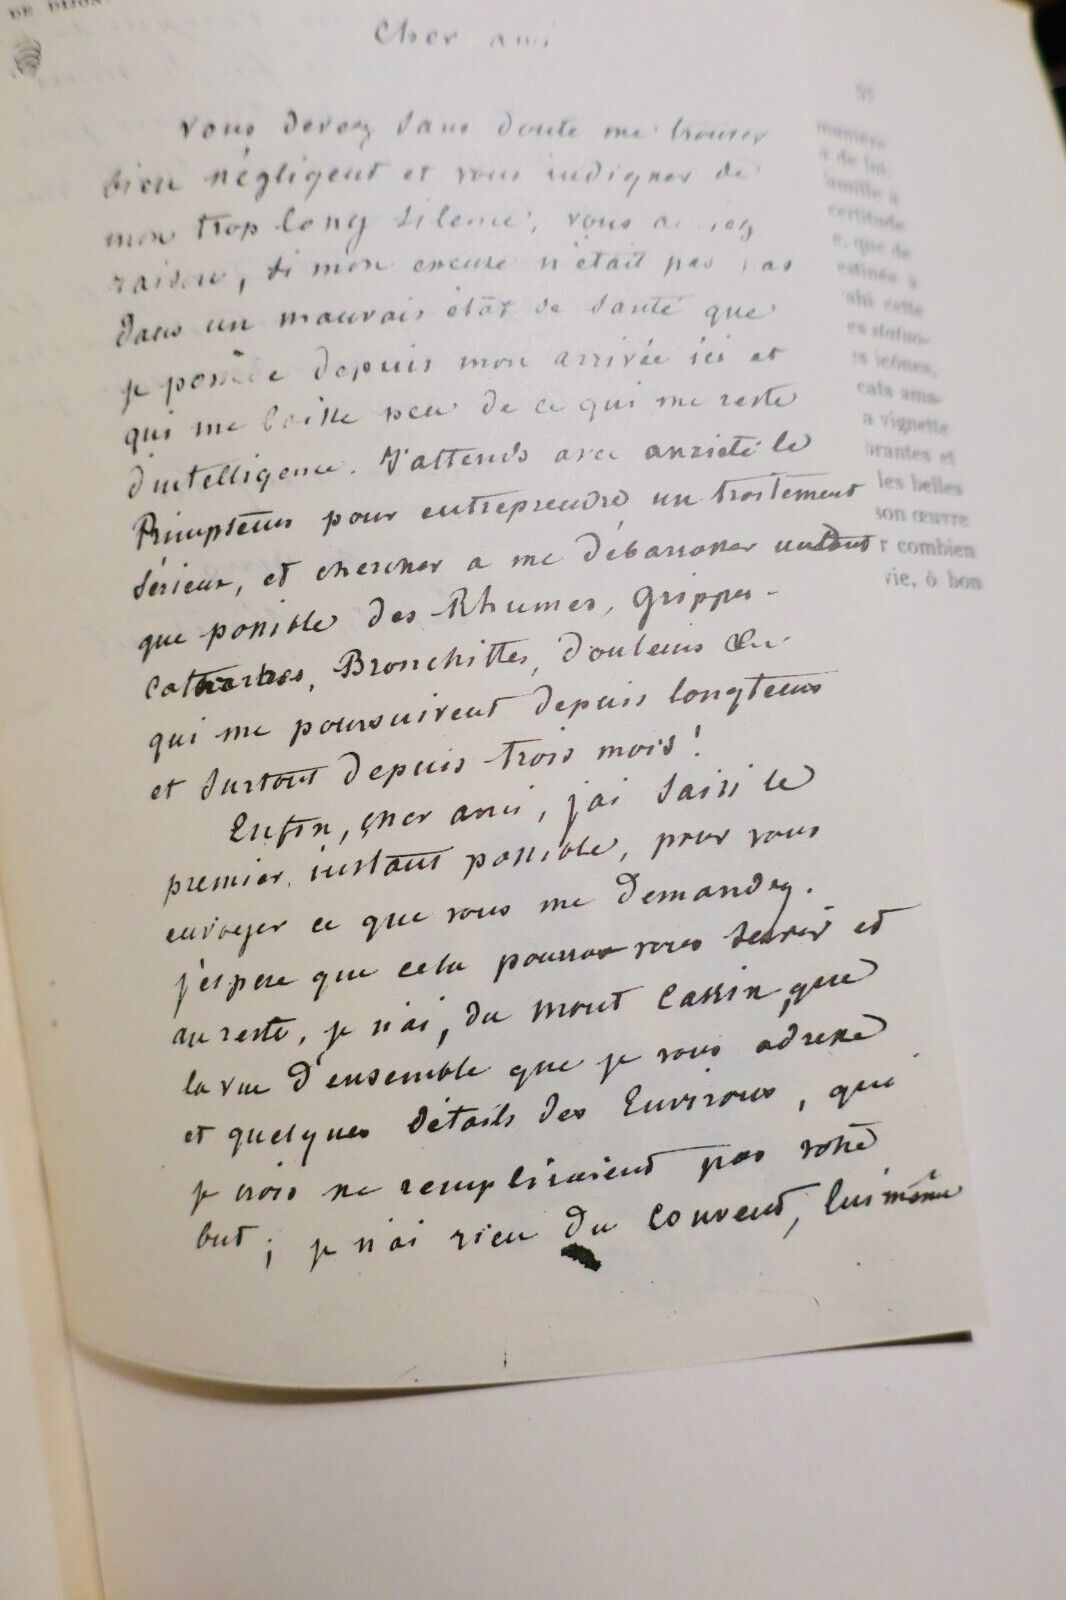 DE DIJON.
Cher ami
vous devez sans doute me trouver
bien négligent et vous indigner de
mon trop long silence, vous auriez
raison, si mon excuse n'était pas pas
dans un mauvais état de santé que
je possède depuis mon arrivée ici et
qui me laisse peu de ce qui me reste
d'intelligence. J'attends avec anxiété le
Printemps pour entreprendre un traitement
sérieux, et chercher a me débarrasser autant
que possible des Rhumes, Grippes -
Catharres, Bronchittes, douleurs &
qui me poursuivent depuis longtems
et surtout depuis trois mois !
Enfin, cher ami, j'ai saisi le
premier instant possible, pour vous
envoyer ce que vous me demandez.
j'espere que cela pourra vous servir et
au reste, je n'ai, du mont Cassin, que
la vue d'ensemble que je vous adresse
et quelques détails des Environs, qui
je crois ne rempliraient pas votre
but ; je n'ai rien du Couvent, lui même
manière
famille à
certitude
e, que de
cette
icônes,
cats ama-
a vignette
brantes et
les belles
son œuvre
r combien
vie, ô bon